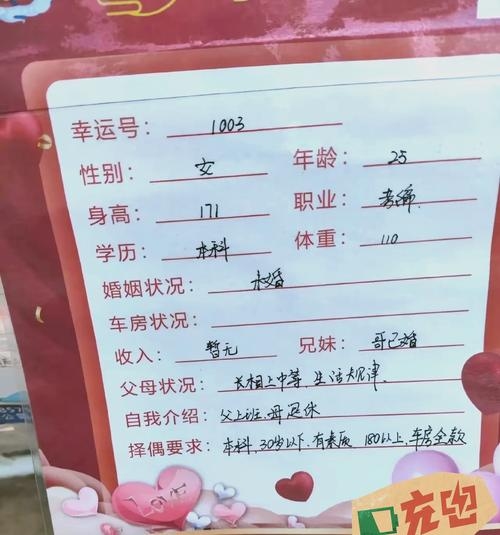 幸运号: 1003
性别: 女 年龄: 25
身高: 171 职业: 考编
学历: 本科 体重: 110
婚姻状况: 未婚
车房状况:
收入: 暂无 兄妹: 哥已婚
父母状况: 长相上中等、生活规津.
自我介绍: 父上班、母退休
择偶要求: 本科、30岁以下、有素质 180以上、车房全款
Love
充电